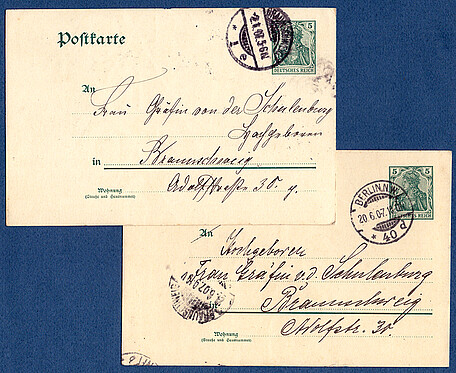 Postkarte
5
DEUTSCHES REICH
An
Frau Gräfin von der Schulenburg
Hochgeboren
in Braunschweig
Wohnung
(Straße und Hausnummer)
Adolfstraße 30.
5 5
DEUTSCHES REICH
BERLIN, N.W.
20.6.07.
P 04
An
Hochgeboren
Frau Gräfin v. d. Schulenburg
Braunschweig
Wohnung
(Straße und Hausnummer)
Adolfstr. 30.